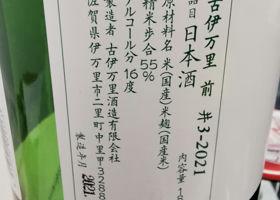 古伊万里 前 #3-2021
品目 日本酒
内容量 18
原材料名 米(国産)米麹(国産米)
精米歩合 55%
アルコール分 16度
製造者 古伊万里酒造有限会社
佐賀県伊万里市二里町中里甲3288
製造年月 2021.